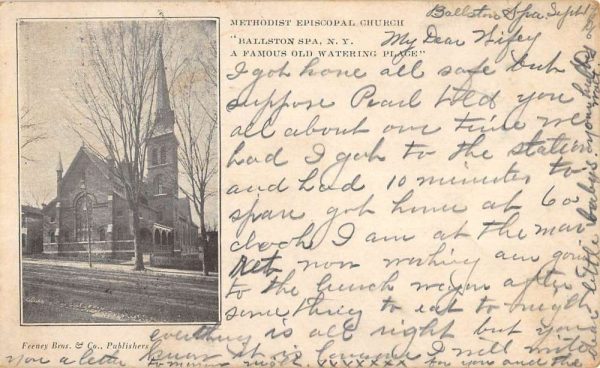 METHODIST EPISCOPAL CHURCH
"BALLSTON SPA, N. Y.
A FAMOUS OLD WATERING PLACE"
Ballston Spa Sept
My Dear Wifey
I got home all safe but
suppose Pearl told you
all about our time we
had I got to the station
and had 10 minutes to
spare got home at 6 o
clock I am at the mar
ket now working am going
to the lunch wagon after
some thing to eat to night
everything is all right but you
know it is lonesome I will write
you a letter tomorrow night xxxxxxxx for you and the
dear little baby's
Feeney Bros. & Co., Publishers